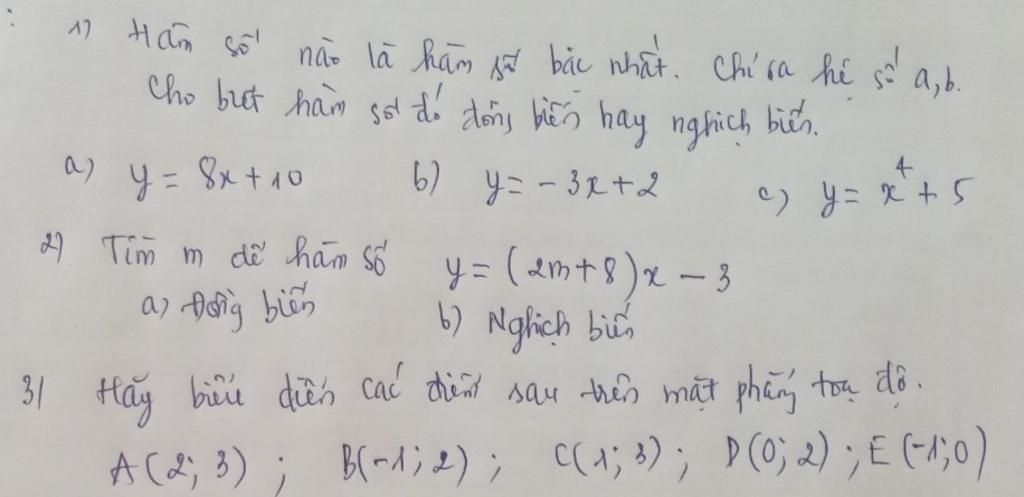 1) Hàm số nào là hàm số bậc nhất. Chỉ ra hệ số a,b.
Cho biết hàm số đó đồng biến hay nghịch biến.
a) y = 8x + 10 b) y = - 3x + 2 c) y = x⁴ + 5
2) Tìm m để hàm số y = (2m + 8)x - 3
a) Đồng biến b) Nghịch biến
3/ Hãy biểu diễn các điểm sau trên mặt phẳng toạ độ.
A(2; 3) ; B(-1; 2) ; C(1; 3) ; D(0; 2) ; E(-1; 0)